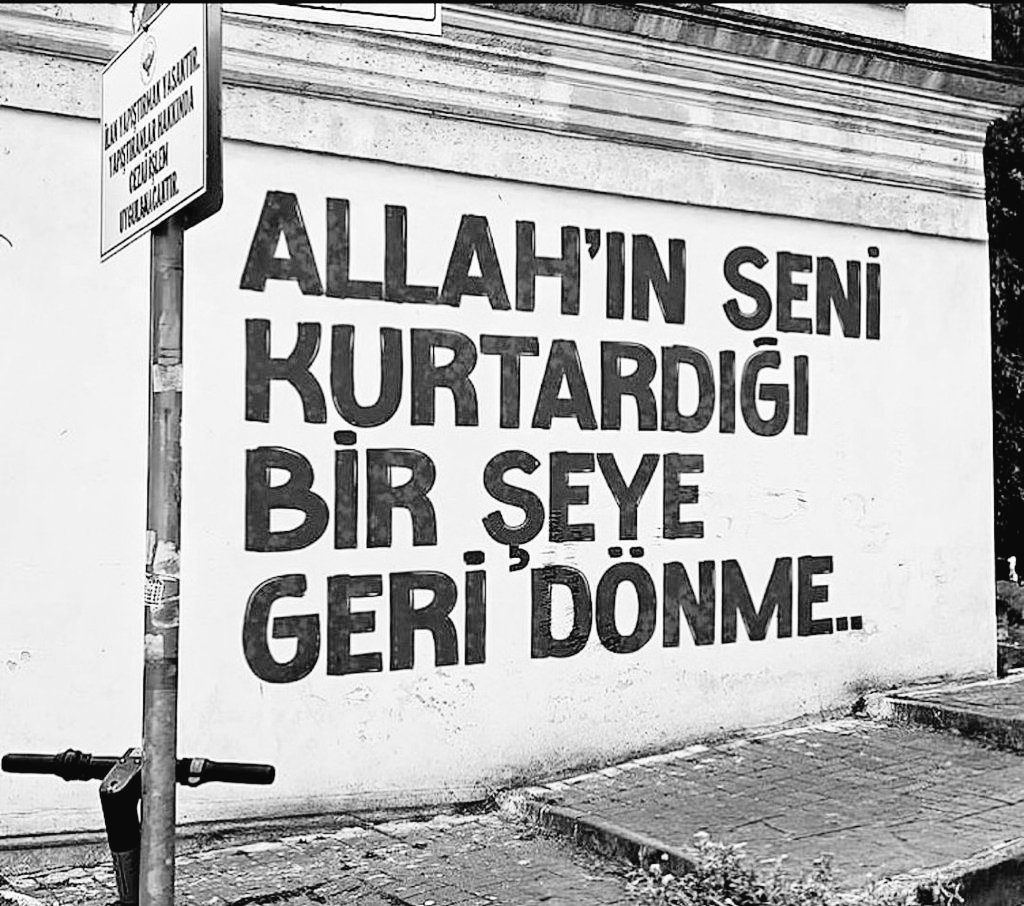 İLAN YAPIŞTIRMAK YASAKTIR.
YAPIŞTIRANLAR HAKKINDA
CEZAİ İŞLEM
UYGULANACAKTIR.
ALLAH'IN SENİ
KURTARDIĞI
BİR ŞEYE
GERİ DÖNME..